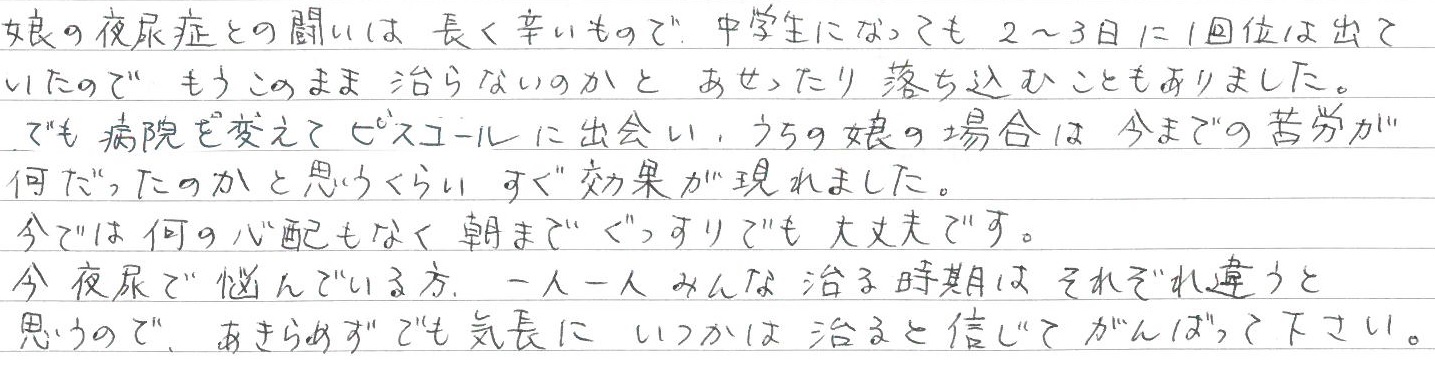 娘の夜尿症との闘いは 長く辛いもので、中学生になっても 2～3日に1回位は出て
いたので もうこのまま 治らないのかと あせったり 落ち込むこともありました。
でも 病院を変えて ピスコールに出会い、うちの娘の場合は 今までの苦労が
何だったのかと思うくらい すぐ効果が現れました。
今では何の心配もなく 朝まで ぐっすりでも 大丈夫です。
今 夜尿で 悩んでいる方、一人一人 みんな 治る時期は それぞれ違うと
思うので、あきらめず でも 気長に いつかは 治ると信じて がんばって下さい。